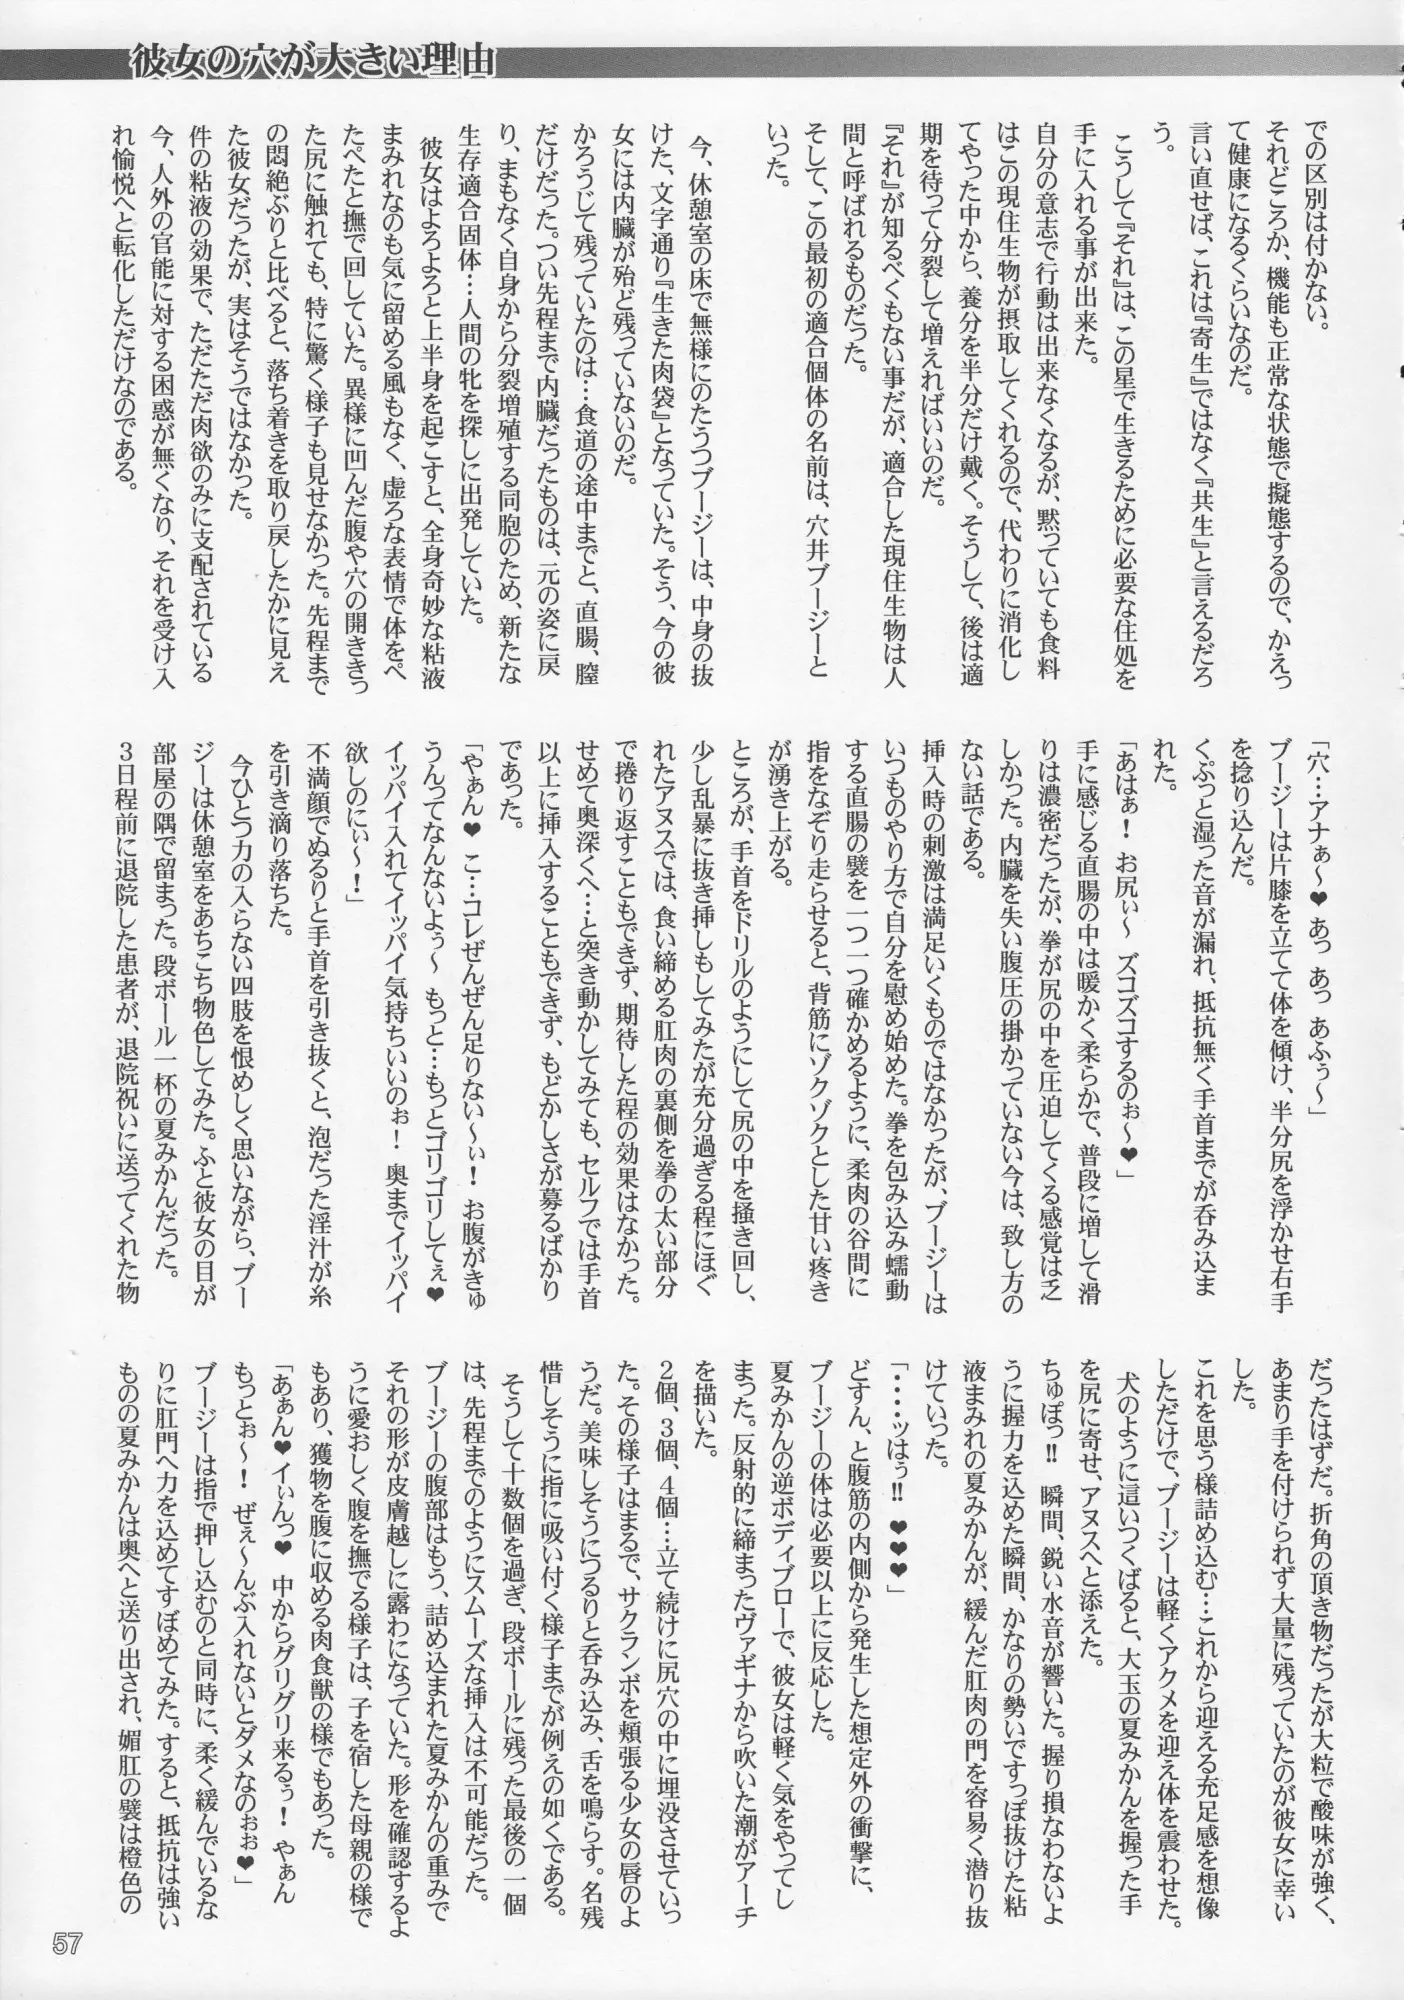 彼女の穴が大きい理由
での区別は付かない。
それどころか、機能も正常な状態で擬態するので、かえっ
て健康になるくらいなのだ。
言い直せば、これは『寄生』ではなく『共生』と言えるだろ
う。
こうして『それ』は、この星で生きるために必要な住処を
手に入れる事が出来た。
自分の意志で行動は出来なくなるが、黙っていても食料
はこの現住生物が摂取してくれるので、代わりに消化し
てやった中から、養分を半分だけ戴く。そうして、後は適
期を待って分裂して増えればいいのだ。
『それ』が知るべくもない事だが、適合した現住生物は人
間と呼ばれるものだった。
そして、この最初の適合個体の名前は、穴井ブージーと
いった。
今、休憩室の床で無様にのたうつブージーは、中身の抜
けた、文字通り『生きた肉袋』となっていた。そう、今の彼
女には内臓が殆ど残っていないのだ。
かろうじて残っていたのは…食道の途中までと、直腸、膣
だけだった。つい先程まで内臓だったものは、元の姿に戻
り、まもなく自身から分裂増殖する同胞のため、新たな
生存適合固体…人間の牝を探しに出発していた。
彼女はよろよろと上半身を起こすと、全身奇妙な粘液
まみれなのも気に留める風もなく、虚ろな表情で体をぺ
たぺたと撫で回していた。異様に凹んだ腹や穴の開ききっ
た尻に触れても、特に驚く様子も見せなかった。先程まで
の悶絶ぶりと比べると、落ち着きを取り戻したかに見え
た彼女だったが、実はそうではなかった。
件の粘液の効果で、ただただ肉欲のみに支配されている
今、人外の官能に対する困惑が無くなり、それを受け入
れ愉悦へと転化しただけなのである。
「穴…アナぁ〜❤ あっ あっ あふぅ〜」
ブージーは片膝を立てて体を傾け、半分尻を浮かせ右手
を捻り込んだ。
くぷっと湿った音が漏れ、抵抗無く手首までが呑み込ま
れた。
「あはぁ！ お尻ぃ〜 ズコズコするのぉ〜❤」
手に感じる直腸の中は暖かく柔らかで、普段に増して滑
りは濃密だったが、拳が尻の中を圧迫してくる感覚は乏
しかった。内臓を失い腹圧の掛かっていない今は、致し方の
ない話である。
挿入時の刺激は満足いくものではなかったが、ブージーは
いつものやり方で自分を慰め始めた。拳を包み込み蠕動
する直腸の襞を一つ一つ確かめるように、柔肉の谷間に
指をなぞり走らせると、背筋にゾクゾクとした甘い疼き
が湧き上がる。
ところが、手首をドリルのようにして尻の中を掻き回し、
少し乱暴に抜き挿しもしてみたが充分過ぎる程にほぐ
れたアヌスでは、食い締める肛肉の裏側を拳の太い部分
で捲り返すこともできず、期待した程の効果はなかった。
せめて奥深くへ…と突き動かしてみても、セルフでは手首
以上に挿入することもできず、もどかしさが募るばかり
であった。
「やぁん❤ こ…コレぜんぜん足りない〜ぃ！ お腹がきゅ
うんってなんないよぅ〜 もっと…もっとゴリゴリしてぇ❤
イッパイ入れてイッパイ気持ちいいのぉ！ 奥までイッパイ
欲しのにぃ〜！」
不満顔でぬるりと手首を引き抜くと、泡だった淫汁が糸
を引き滴り落ちた。
今ひとつ力の入らない四肢を恨めしく思いながら、ブー
ジーは休憩室をあちこち物色してみた。ふと彼女の目が
部屋の隅で留まった。段ボール一杯の夏みかんだった。
３日程前に退院した患者が、退院祝いに送ってくれた物
だったはずだ。折角の頂き物だったが大粒で酸味が強く、
あまり手を付けられず大量に残っていたのが彼女に幸い
した。
これを思う様詰め込む…これから迎える充足感を想像
しただけで、ブージーは軽くアクメを迎え体を震わせた。
犬のように這いつくばると、大玉の夏みかんを握った手
を尻に寄せ、アヌスへと添えた。
ちゅぽっ!! 瞬間、鋭い水音が響いた。握り損なわないよ
うに握力を込めた瞬間、かなりの勢いですっぽ抜けた粘
液まみれの夏みかんが、緩んだ肛肉の門を容易く潜り抜
けていった。
「・・・・ッはぅ!! ❤❤❤」
どすん、と腹筋の内側から発生した想定外の衝撃に、
ブージーの体は必要以上に反応した。
夏みかんの逆ボディブローで、彼女は軽く気をやってし
まった。反射的に締まったヴァギナから吹いた潮がアーチ
を描いた。
２個、３個、４個…立て続けに尻穴の中に埋没させていっ
た。その様子はまるで、サクランボを頬張る少女の唇のよ
うだ。美味しそうにつるりと呑み込み、舌を鳴らす。名残
惜しそうに指に吸い付く様子までが例えの如くである。
そうして十数個を過ぎ、段ボールに残った最後の一個
は、先程までのようにスムーズな挿入は不可能だった。
ブージーの腹部はもう、詰め込まれた夏みかんの重みで
それの形が皮膚越しに露わになっていた。形を確認するよ
うに愛おしく腹を撫でる様子は、子を宿した母親の様で
もあり、獲物を腹に収める肉食獣の様でもあった。
「あぁん❤イぃんっ❤ 中からグリグリ来るぅ！ やぁん
もっとぉ〜！ ぜぇ〜んぶ入れないとダメなのぉぉ❤」
ブージーは指で押し込むのと同時に、柔く緩んでいるな
りに肛門へ力を込めてすぼめてみた。すると、抵抗は強い
ものの夏みかんは奥へと送り出され、媚肛の襞は橙色の
57